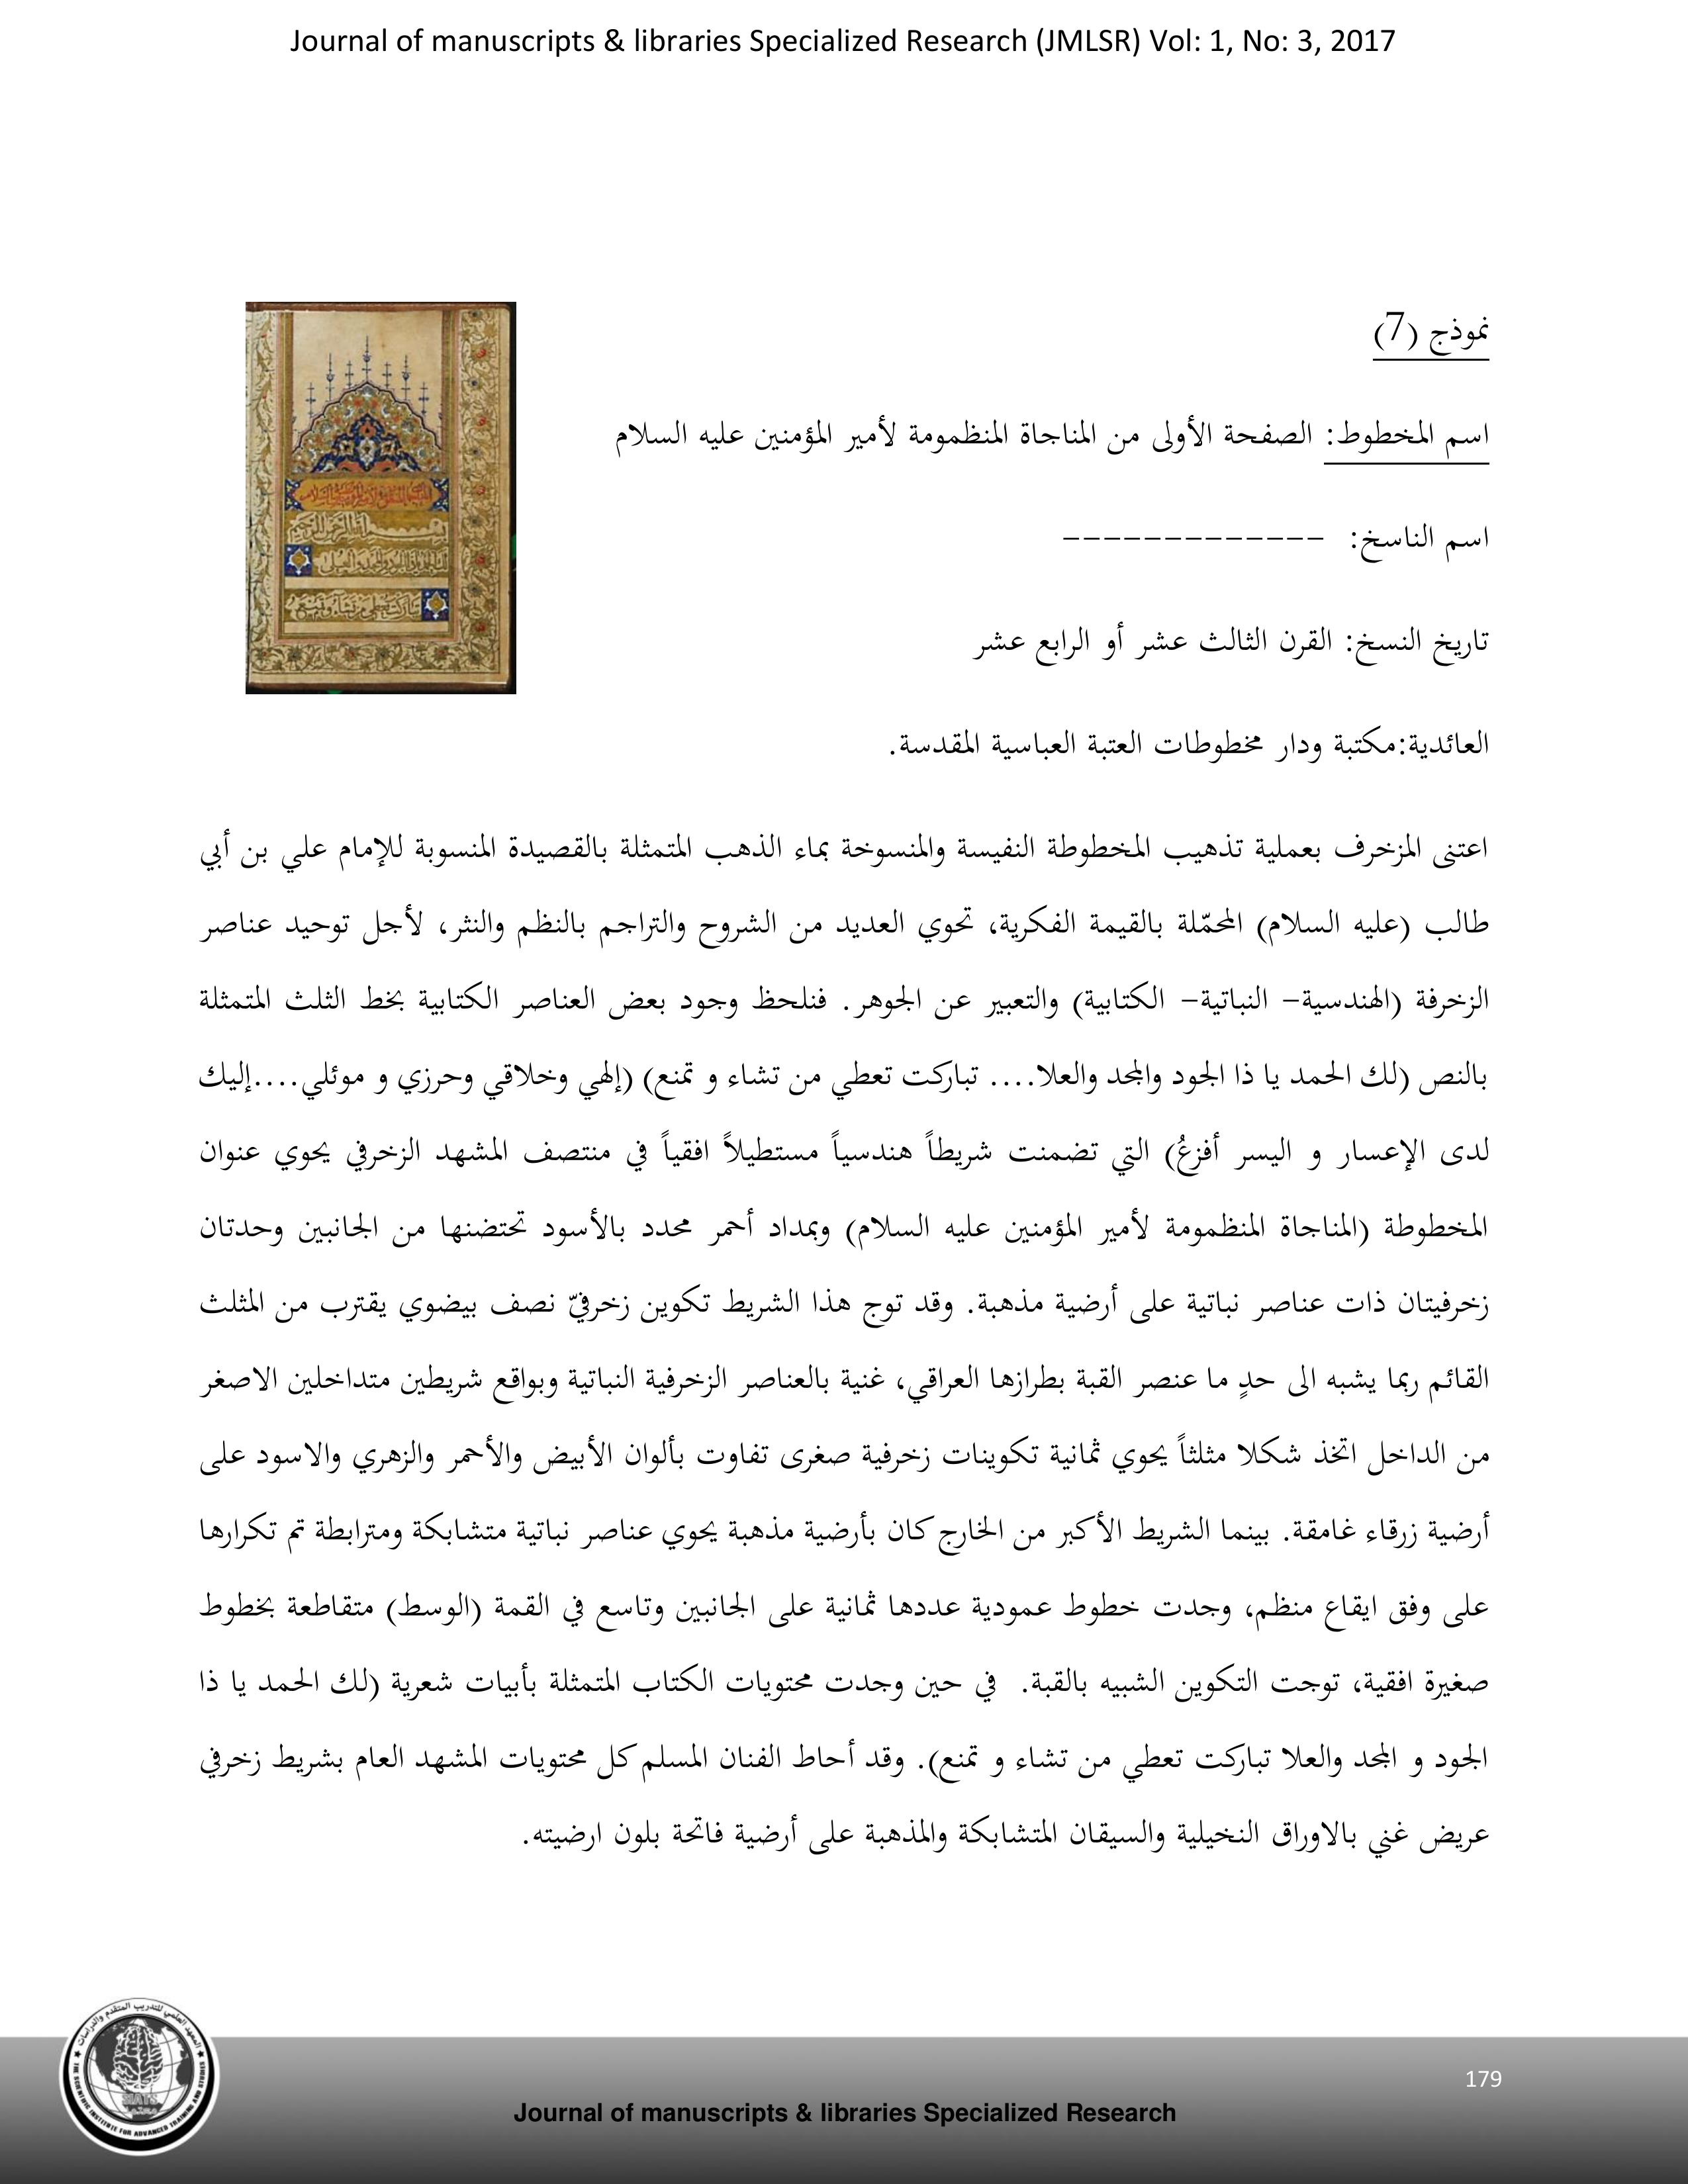 Journal of manuscripts & libraries Specialized Research (JMLSR) Vol: 1, No: 3, 2017
نموذج (7)
اسم المخطوط: الصفحة الأولى من المناجاة المنظمومة لأمير المؤمنين عليه السلام
اسم الناسخ: -------------
تاريخ النسخ: القرن الثالث عشر أو الرابع عشر
العائدية:مكتبة ودار مخطوطات العتبة العباسية المقدسة.
اعتنى المزخرف بعملية تذهيب المخطوطة النفيسة والمنسوخة بماء الذهب المتمثلة بالقصيدة المنسوبة للإمام علي بن أبي
طالب (عليه السلام) المحمّلة بالقيمة الفكرية، تحوي العديد من الشروح والتراجم بالنظم والنثر، لأجل توحيد عناصر
الزخرفة (الهندسية- النباتية- الكتابية) والتعبير عن الجوهر. فنلحظ وجود بعض العناصر الكتابية بخط الثلث المتمثلة
بالنص (لك الحمد يا ذا الجود والمجد والعلا.... تباركت تعطي من تشاء و تمنع) (إلهي وخلاقي وحرزي و موئلي....إليك
لدى الإعسار و اليسر أفزعُ) التي تضمنت شريطاً هندسياً مستطيلاً افقياً في منتصف المشهد الزخرفي يحوي عنوان
المخطوطة (المناجاة المنظمومة لأمير المؤمنين عليه السلام) وبمداد أحمر محدد بالأسود تحتضنها من الجانبين وحدتان
زخرفيتان ذات عناصر نباتية على أرضية مذهبة. وقد توج هذا الشريط تكوين زخرفيّ نصف بيضوي يقترب من المثلث
القائم ربما يشبه الى حدٍ ما عنصر القبة بطرازها العراقي، غنية بالعناصر الزخرفية النباتية وبواقع شريطين متداخلين الاصغر
من الداخل اتخذ شكلا مثلثاً يحوي ثمانية تكوينات زخرفية صغرى تفاوت بألوان الأبيض والأحمر والزهري والاسود على
أرضية زرقاء غامقة. بينما الشريط الأكبر من الخارج كان بأرضية مذهبة يحوي عناصر نباتية متشابكة ومترابطة تم تكرارها
على وفق ايقاع منظم، وجدت خطوط عمودية عددها ثمانية على الجانبين وتاسع في القمة (الوسط) متقاطعة بخطوط
صغيرة افقية، توجت التكوين الشبيه بالقبة. في حين وجدت محتويات الكتاب المتمثلة بأبيات شعرية (لك الحمد يا ذا
الجود و المجد والعلا تباركت تعطي من تشاء و تمنع). وقد أحاط الفنان المسلم كل محتويات المشهد العام بشريط زخرفي
عريض غني بالاوراق النخيلية والسيقان المتشابكة والمذهبة على أرضية فاتحة بلون ارضيته.
179
Journal of manuscripts & libraries Specialized Research